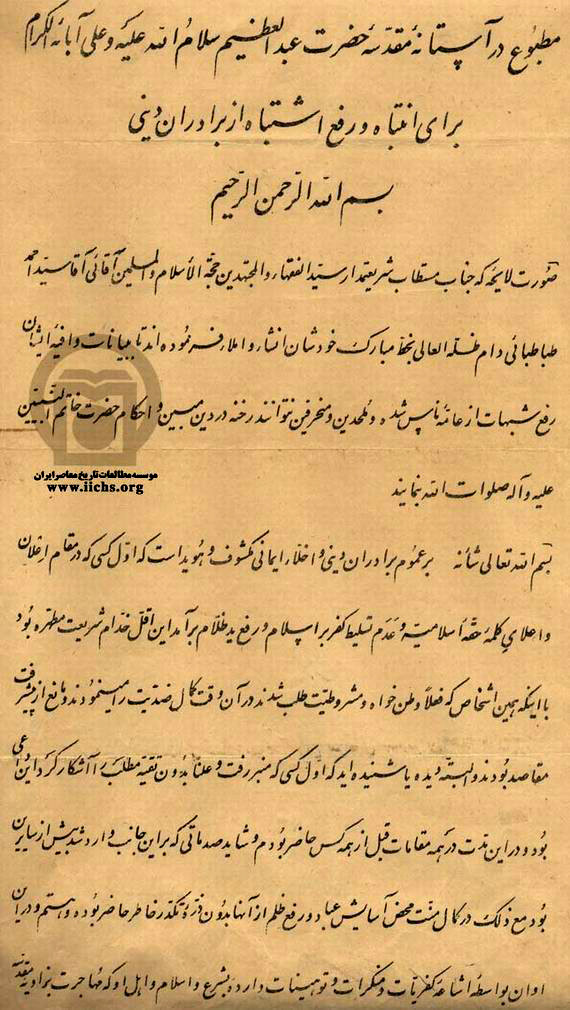 مطبوع در آستانهٔ مقدسهٔ حضرت عبد العظیم سلام الله علیه و علی آبائه الکرام
برای انتباه و رفع اشتباه از برادران دینی
بسم الله الرحمن الرحیم
صورت لایحه که جناب مستطاب شریعتمدار سید الفقهاء والمجتهدین حجة الاسلام والمسلمین آقائی آقا سید احمد
طباطبائی دام ظله العالی بخط مبارک خودشان انشاء و املاء فرموده اند تا ببیانات وافیهٔ ایشان
رفع شبهات از عامهٔ ناس شده و ملحدین و منحرفین نتوانند رخنه در دین مبین و احکام حضرت خاتم النبیین
علیه و آله صلوات الله نمایند
موسسه مطالعات تاریخ معاصر ایران
www.iichs.org
بسم الله تعالی شأنه بر عموم برادران دینی و اخلاء ایمانی مکشوف و هویداست که اول کسی که در مقام اعلان
و اعلای کلمهٔ حقهٔ اسلامیت و عدم تسلیط کفر بر اسلام و رفع ید ظلام برآمد این اقل خدام شریعت مطهره بود
با اینکه همین اشخاص که فعلاً وطن خواه و مشروطیت طلب شدند در آن وقت کمال ضدیت را مینمودند و مانع از پیشرفت
مقاصد بودند و البته دیده یا شنیده اید که اول کسی که منبر رفت و علناً بدون تقیه مطلب را آشکار کرد این داعی
بود و در این مدت در همه مقامات قبل از همه کس حاضر بودم و شاید صدماتی که بر این جانب وارد شد بیش از سایرین
بود مع ذلک در کمال منت محض آسایش عباد و رفع ظلم از آنها بدون ذرهٔ تکدر خاطر حاضر بوده و هستم و در این
اوان بواسطهٔ اشاعهٔ کفریات و منکرات و توهینات وارده بشرع و اسلام و اهل او که مهاجرت بزاویهٔ مقدسه